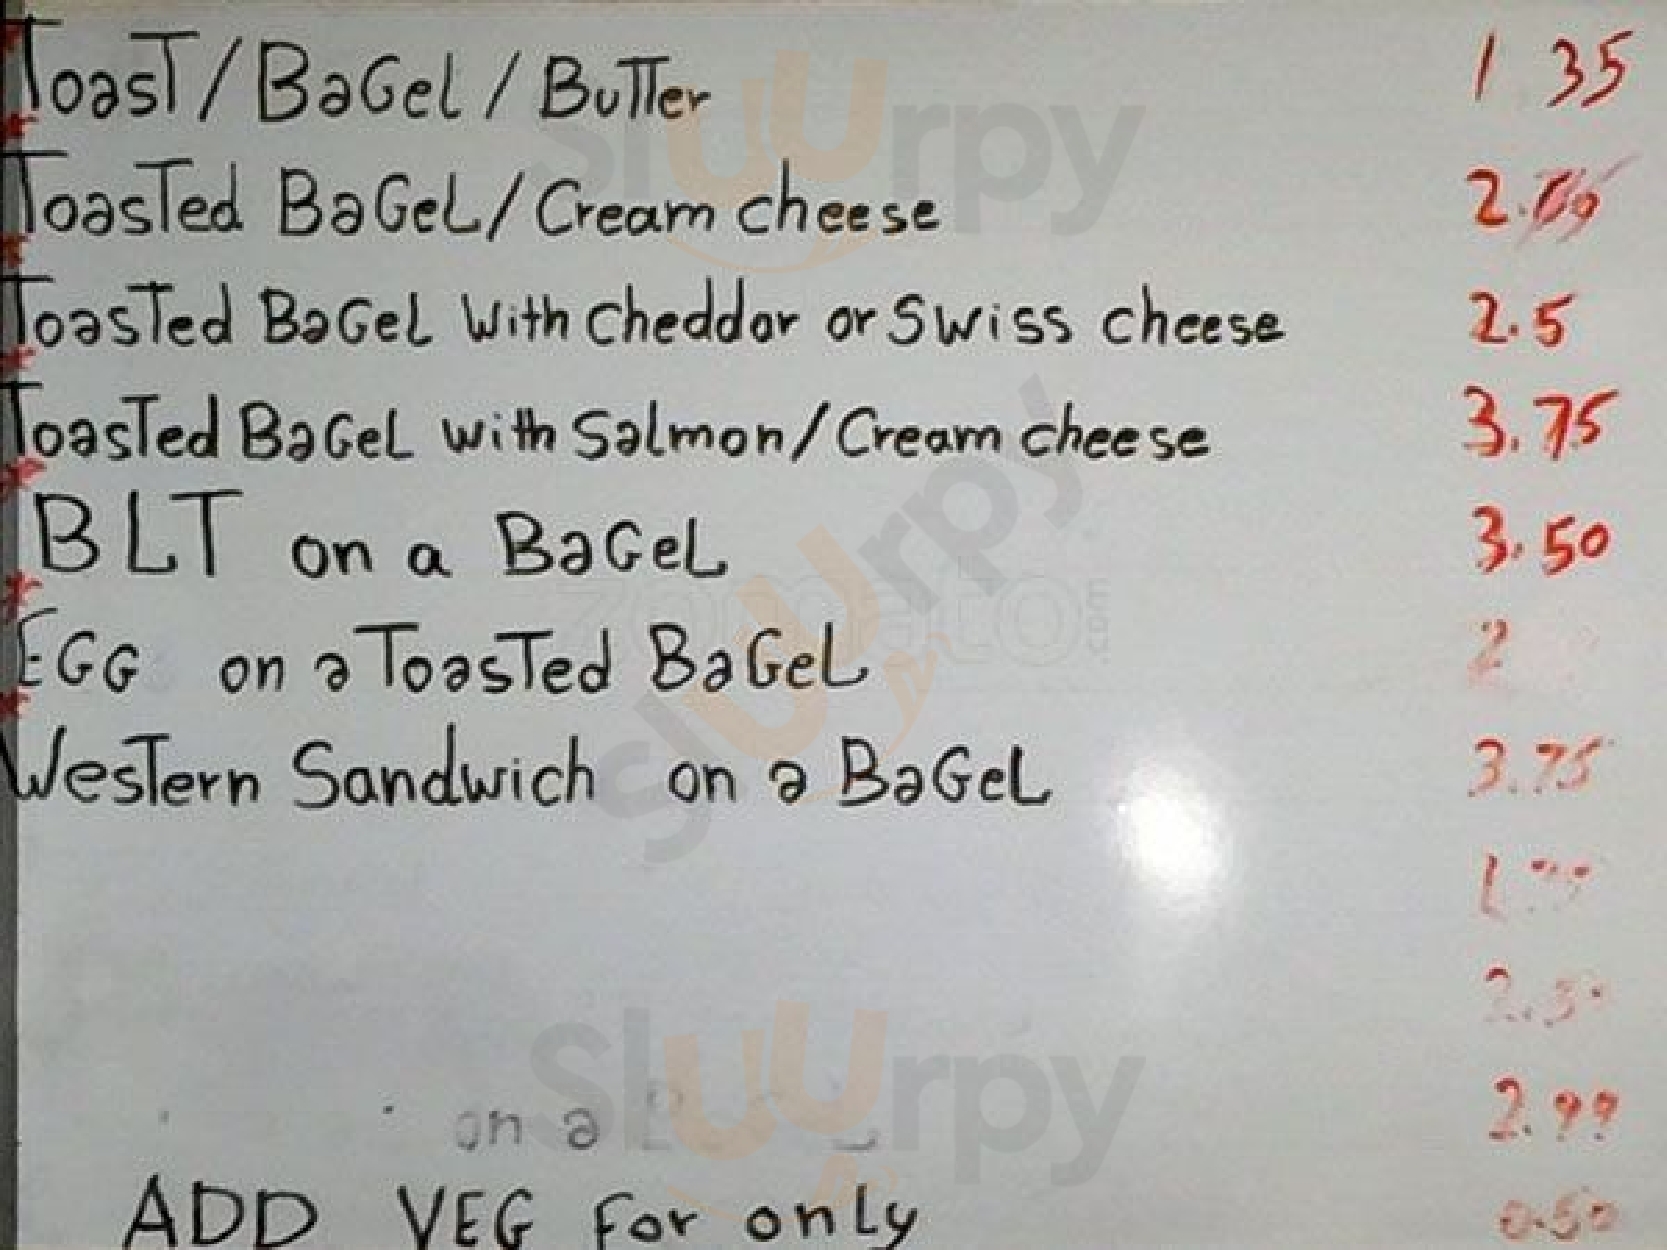 Toast/BaGel/Butter 1.35
Toasted BaGeL/Cream cheese 2.
Toasted BaGeL With Cheddar or Swiss cheese 2.5
Toasted BaGeL with Salmon/Cream cheese 3.75
BLT on a BaGeL 3.50
EGG on a Toasted BaGeL 2
Western Sandwich on a BaGeL 3.75
2.99
on a
ADD VEG For only 0.50
Slurpy
Slurpy
Slurpy
zomato